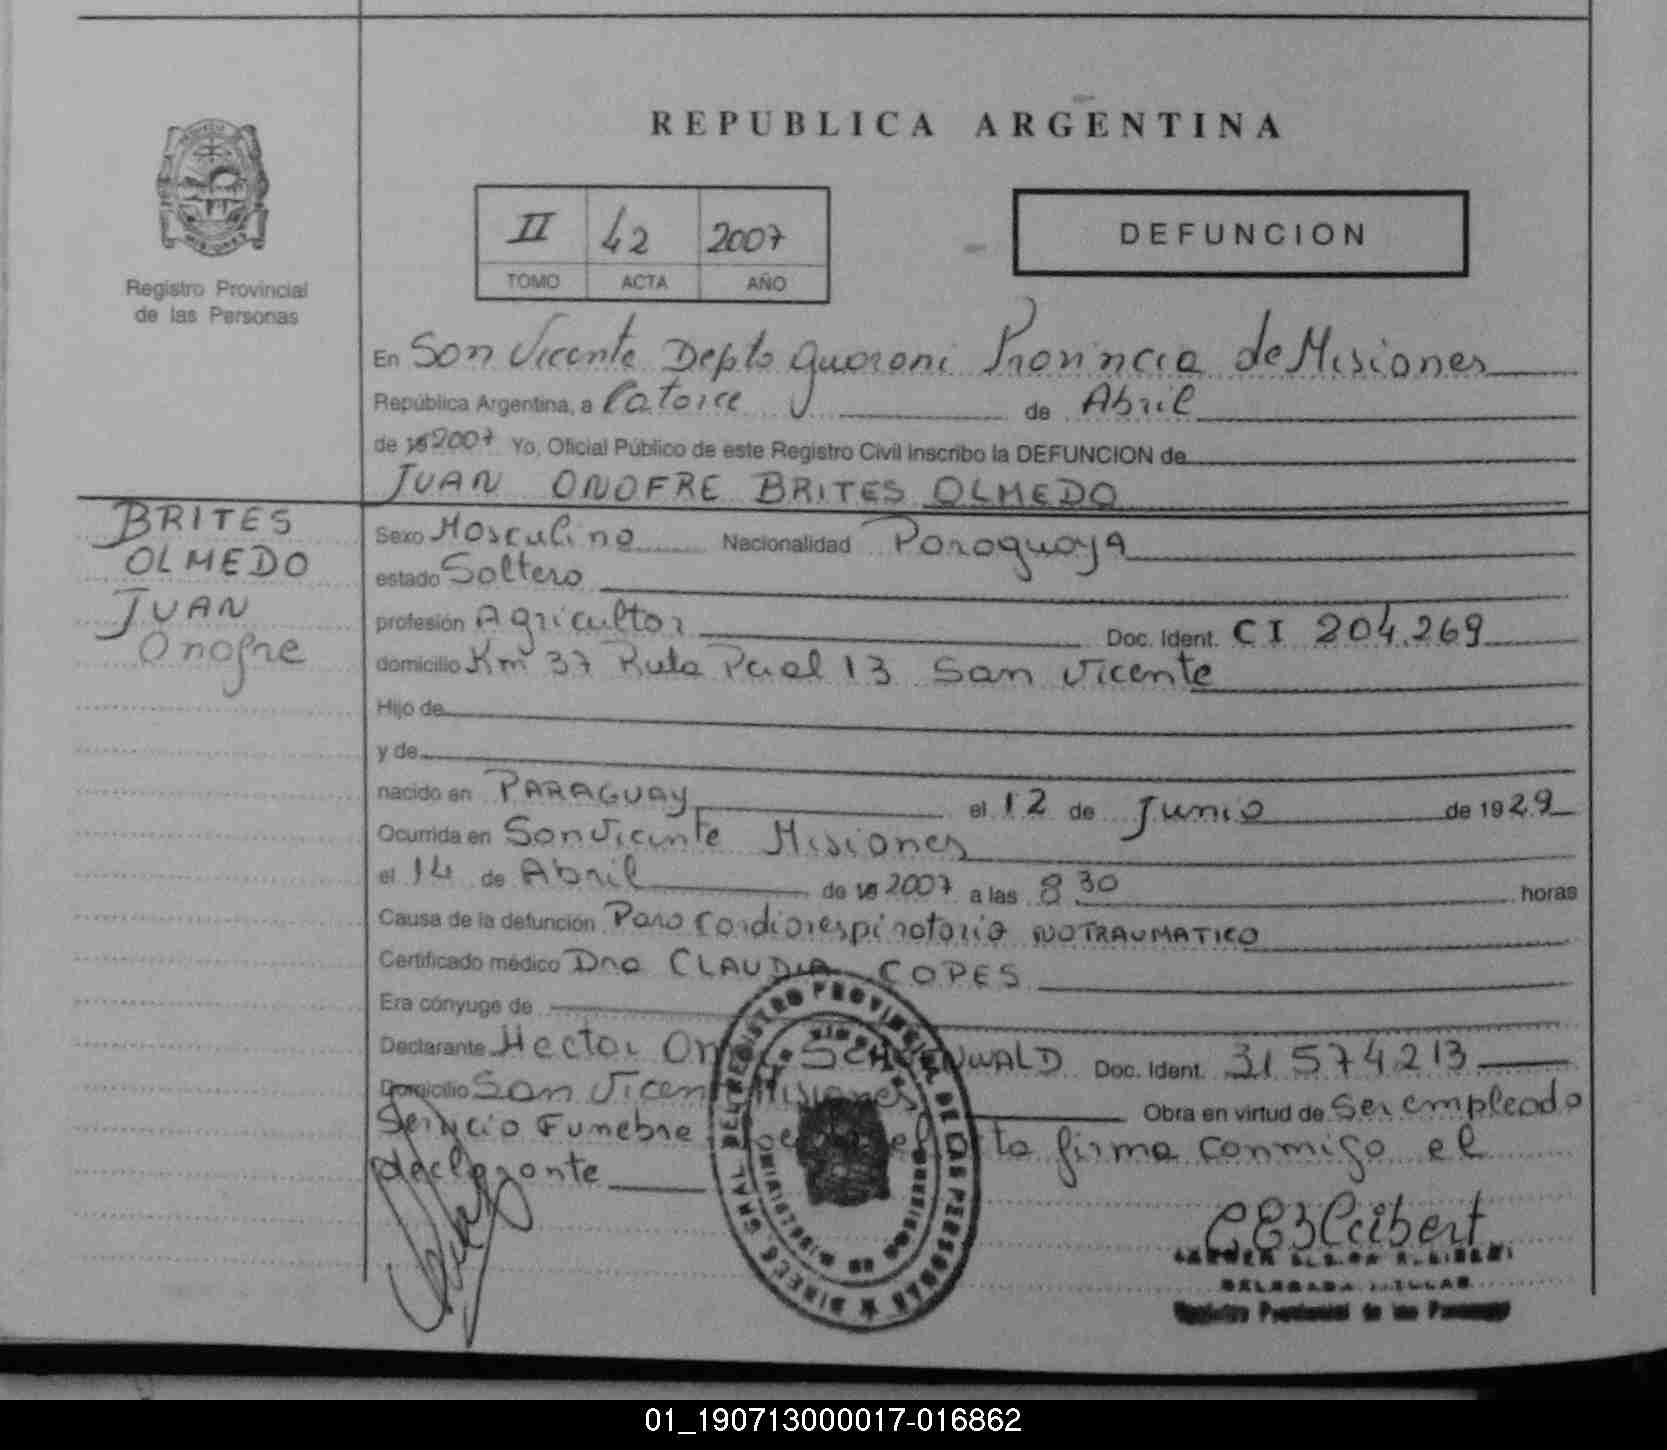 REPUBLICA ARGENTINA
II 42 2007
TOMO ACTA AÑO
DEFUNCION
Registro Provincial
de las Personas
En San Vicente Depto Guarani Provincia de Misiones
República Argentina, a Catorce de Abril
de 19 2007 Yo, Oficial Público de este Registro Civil inscribo la DEFUNCION de
JUAN ONOFRE BRITES OLMEDO
BRITES
OLMEDO
JUAN
Onofre
Sexo Masculino Nacionalidad Paraguaya
estado Soltero
profesión Agricultor Doc. Ident. CI 204.269
domicilio Km 37 Ruta Pcial 13 San Vicente
Hijo de
y de
nacido en PARAGUAY el 12 de Junio de 1929
Ocurrida en San Vicente Misiones
el 14 de Abril de 19 2007 a las 8 30 horas
Causa de la defunción Paro Cardiorespiratorio NO TRAUMATICO
Certificado médico Dra CLAUDIA COPES
Era cónyuge de
Declarante Hector Doc. Ident. 31 574213
Domicilio San Vicente Misiones Obra en virtud de Ser empleado
Servicio Funebre firma conmigo el
declarante
DIREC. GRAL. DEL REGISTRO PROVINCIAL DE LAS PERSONAS
Registro Provincial de las Personas
01_190713000017-016862